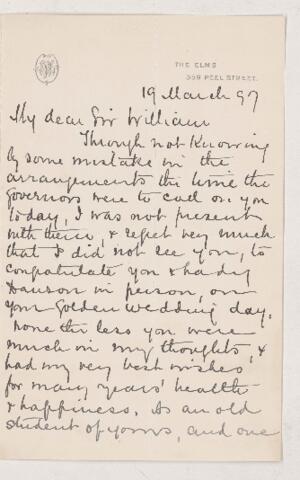 THE ELMS
358 PEEL STREET.
19 March 97
My dear Sir William
Through not Knowing
by some mistake in the
arrangements the time the
Governors were to call on you
today, I was not present
with them, & regret very much
that I did not see you, to
congratulate you & Lady
Dawson in person, on
your Golden wedding day.
None the less you were
much in my thoughts, &
had my very best wishes
for many years' health
& happiness. As an old
student of yours, and one